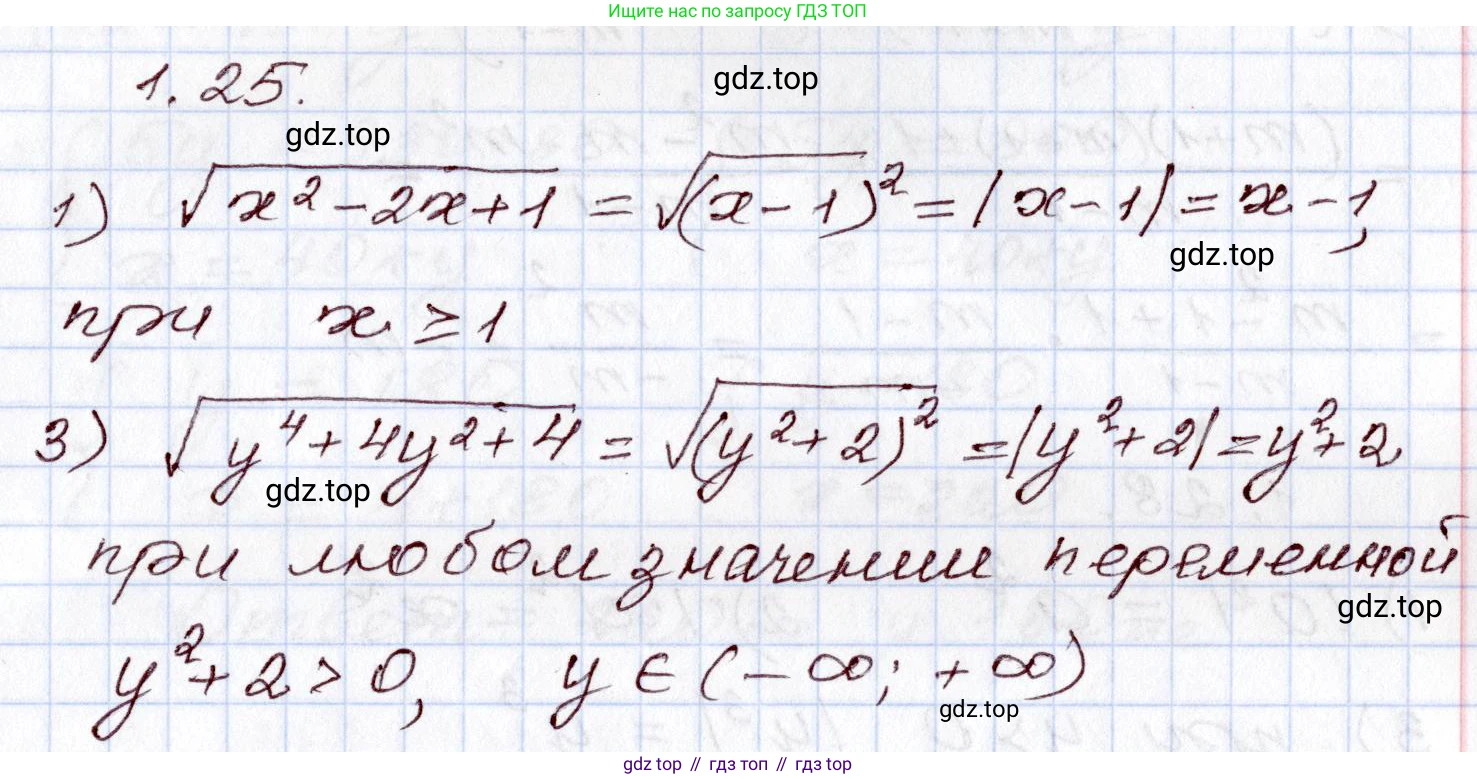 Ищите нас по запросу ГДЗ ТОП
1.25.
gdz.top
gdz.top
1) √(x² − 2x + 1) = √(x − 1)² = |x − 1| = x − 1,
gdz.top
при x ≥ 1
3) √(y⁴ + 4y² + 4) = √(y² + 2)² = |y² + 2| = y² + 2
gdz.top
при любом значении переменной
gdz.top
y² + 2 > 0, y ∈ (− ∞; + ∞)
gdz.top
gdz.top // гдз топ // гдз top